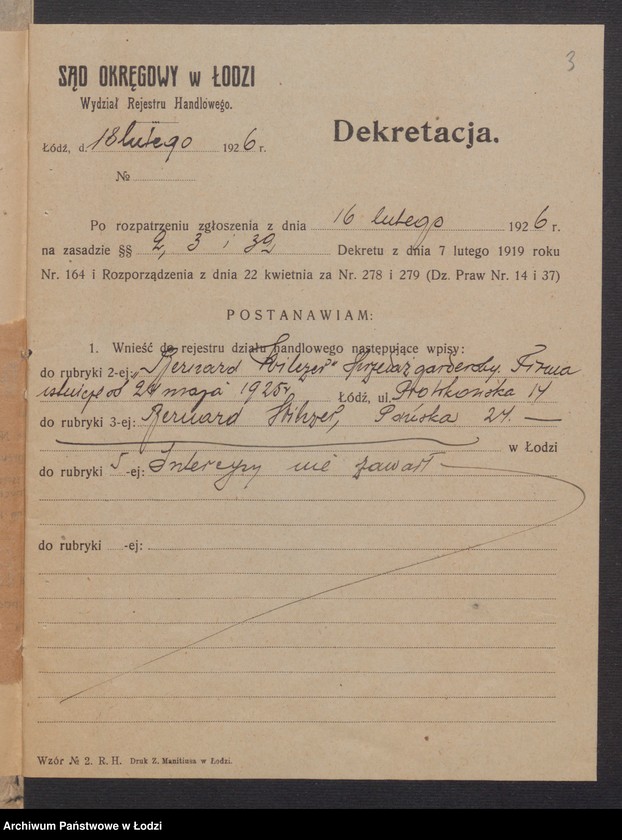 3
SĄD OKRĘGOWY w ŁODZI
Wydział Rejestru Handlowego.
Dekretacja.
Łódź, d. 18 lutego 1926 r.
№
Po rozpatrzeniu zgłoszenia z dnia 16 lutego 1926 r.
na zasadzie §§ 2, 3 i 32 Dekretu z dnia 7 lutego 1919 roku
Nr. 164 i Rozporządzenia z dnia 22 kwietnia za Nr. 278 i 279 (Dz. Praw Nr. 14 i 37)
POSTANAWIAM:
1. Wnieść do rejestru działu handlowego następujące wpisy:
do rubryki 2-ej: „Bernard Sprzedaż garderoby. Firma
istnieje od maja 1925 r Łódź, ul. Piotrkowska 17
do rubryki 3-ej: Bernard Pańska 27. —
w Łodzi
do rubryki 5-ej: Intercyzy nie zawarł —
do rubryki -ej:
Wzór № 2. R. H. Druk Z. Manitiusa w Łodzi.
Archiwum Państwowe w Łodzi